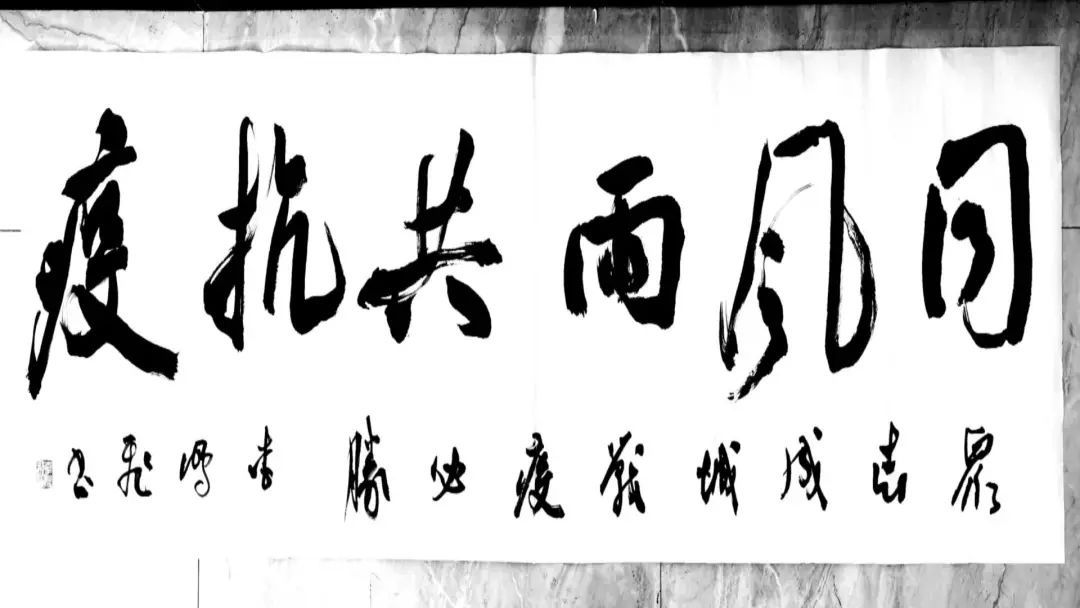 同風雨共抗疫
眾志成城戰疫必勝 李鴻飛書